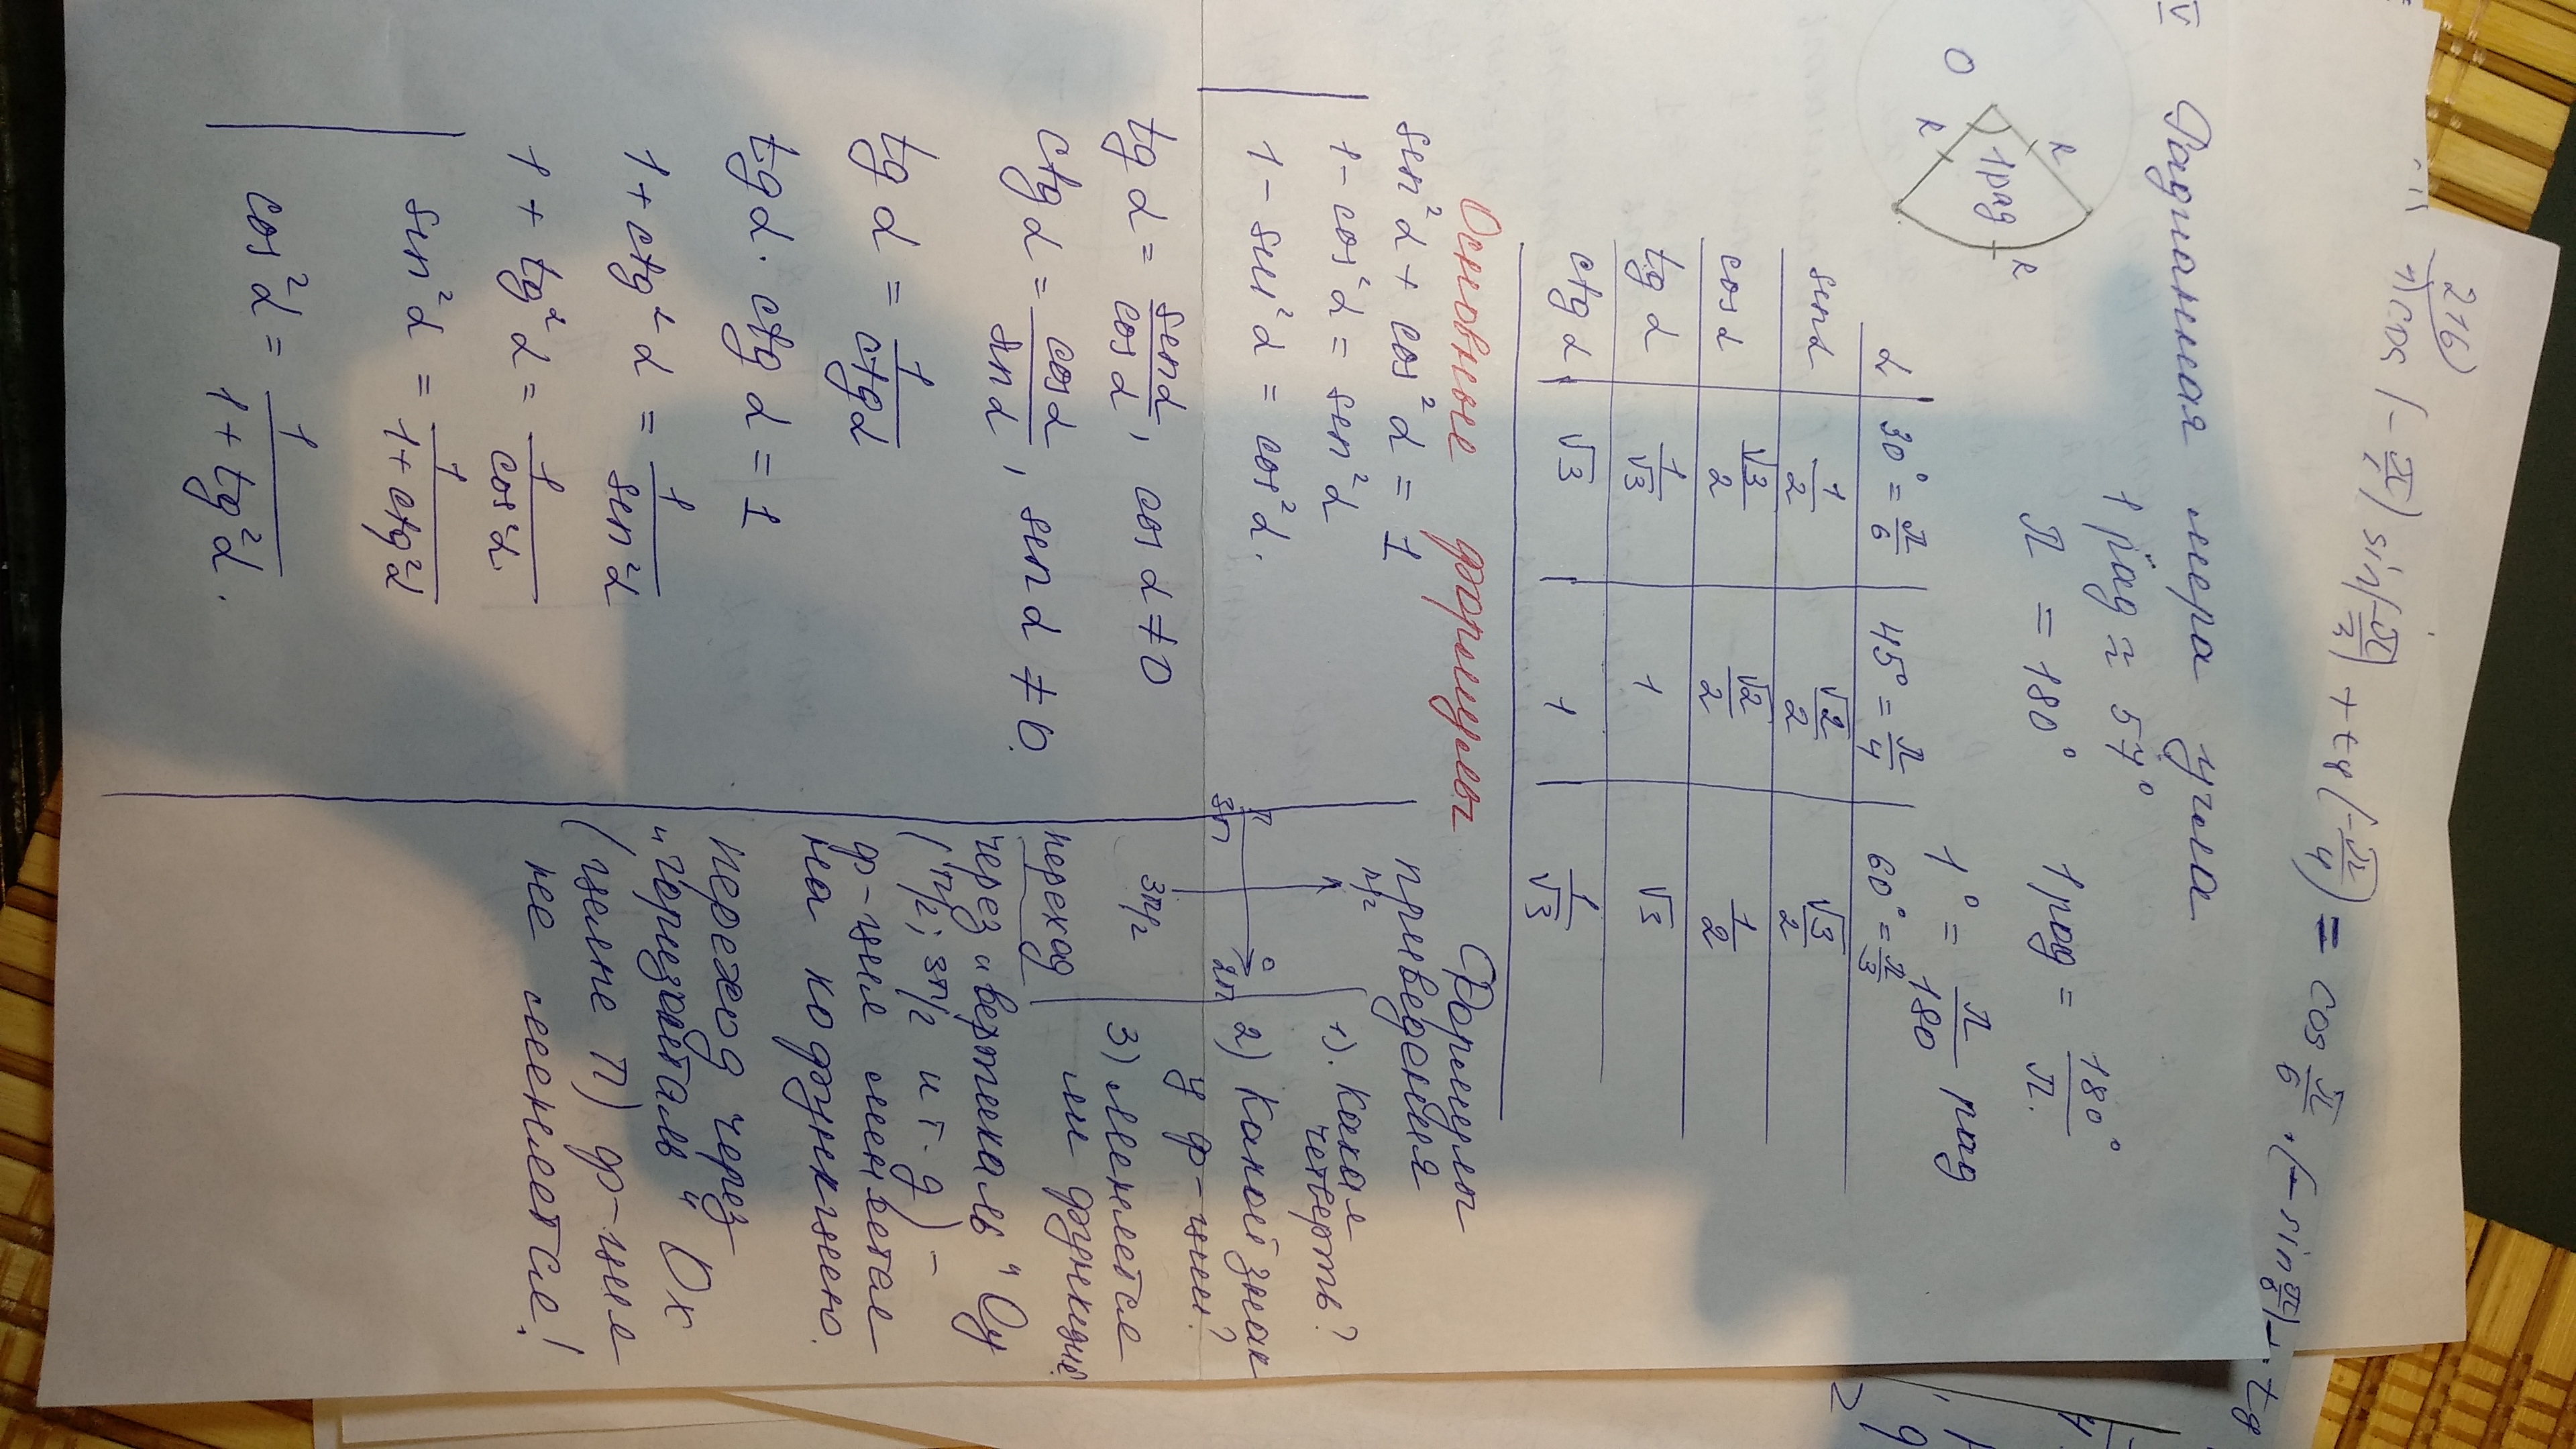 216)
1) cos(-π/6) sin(-π/3) + tg(-π/4) = cos π/6 · (-sin π/3) + tg
IV Радианная мера угла
O R R R 1 рад
1 рад ≈ 57° 1 рад = 180°/π.
π = 180° 1° = π/180 рад
α 30° = π/6 45° = π/4 60° = π/3
sin α 1/2 √2/2 √3/2
cos α √3/2 √2/2 1/2
tg α 1/√3 1 √3
ctg α √3 1 1/√3
Основные формулы
sin²α + cos²α = 1
1 - cos²α = sin²α
1 - sin²α = cos²α.
tg α = sin α/cos α, cos α ≠ 0
ctg α = cos α/sin α, sin α ≠ 0.
tg α = 1/ctg α
tg α · ctg α = 1
1 + ctg²α = 1/sin²α
1 + tg²α = 1/cos²α.
sin²α = 1/1 + ctg²α
cos²α = 1/1 + tg²α.
Формулы
приведения
π/2
π 0
3π 2π
3π/2
1). Какая
четверть?
2) Какой знак
у ф-ции?
3) Меняется
ли функция?
переход
через "вертикаль" Oy
(π/2; 3π/2 и т.д) -
ф-ция меняется
на кофункцию.
Переход через
"горизонталь" Ox
(целые π) ф-ция
не меняется!